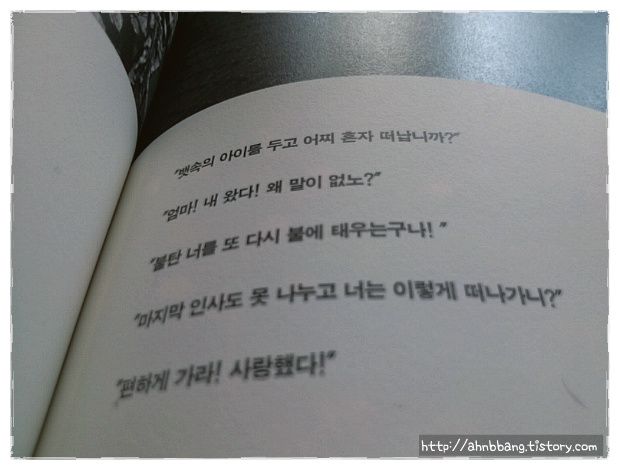 "뱃속의 아이를 두고 어찌 혼자 떠납니까?"
"엄마! 내 왔다! 왜 말이 없노?"
"불탄 너를 또 다시 불에 태우는구나! "
"마지막 인사도 못 나누고 너는 이렇게 떠나가니?"
"편하게 가라! 사랑했다!"
http://ahnbbang.tistory.com